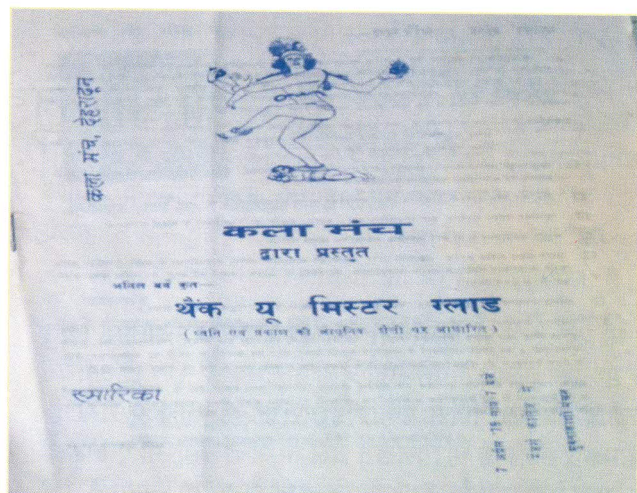 कला मंच, देहरादून
कला मंच
द्वारा प्रस्तुत
अनिल बर्वे कृत—
थैंक यू मिस्टर ग्लाड
( ध्वनि एवं प्रकाश की आधुनिक शैली पर आधारित )
स्मारिका
7 अप्रैल 78 सायं 7 बजे